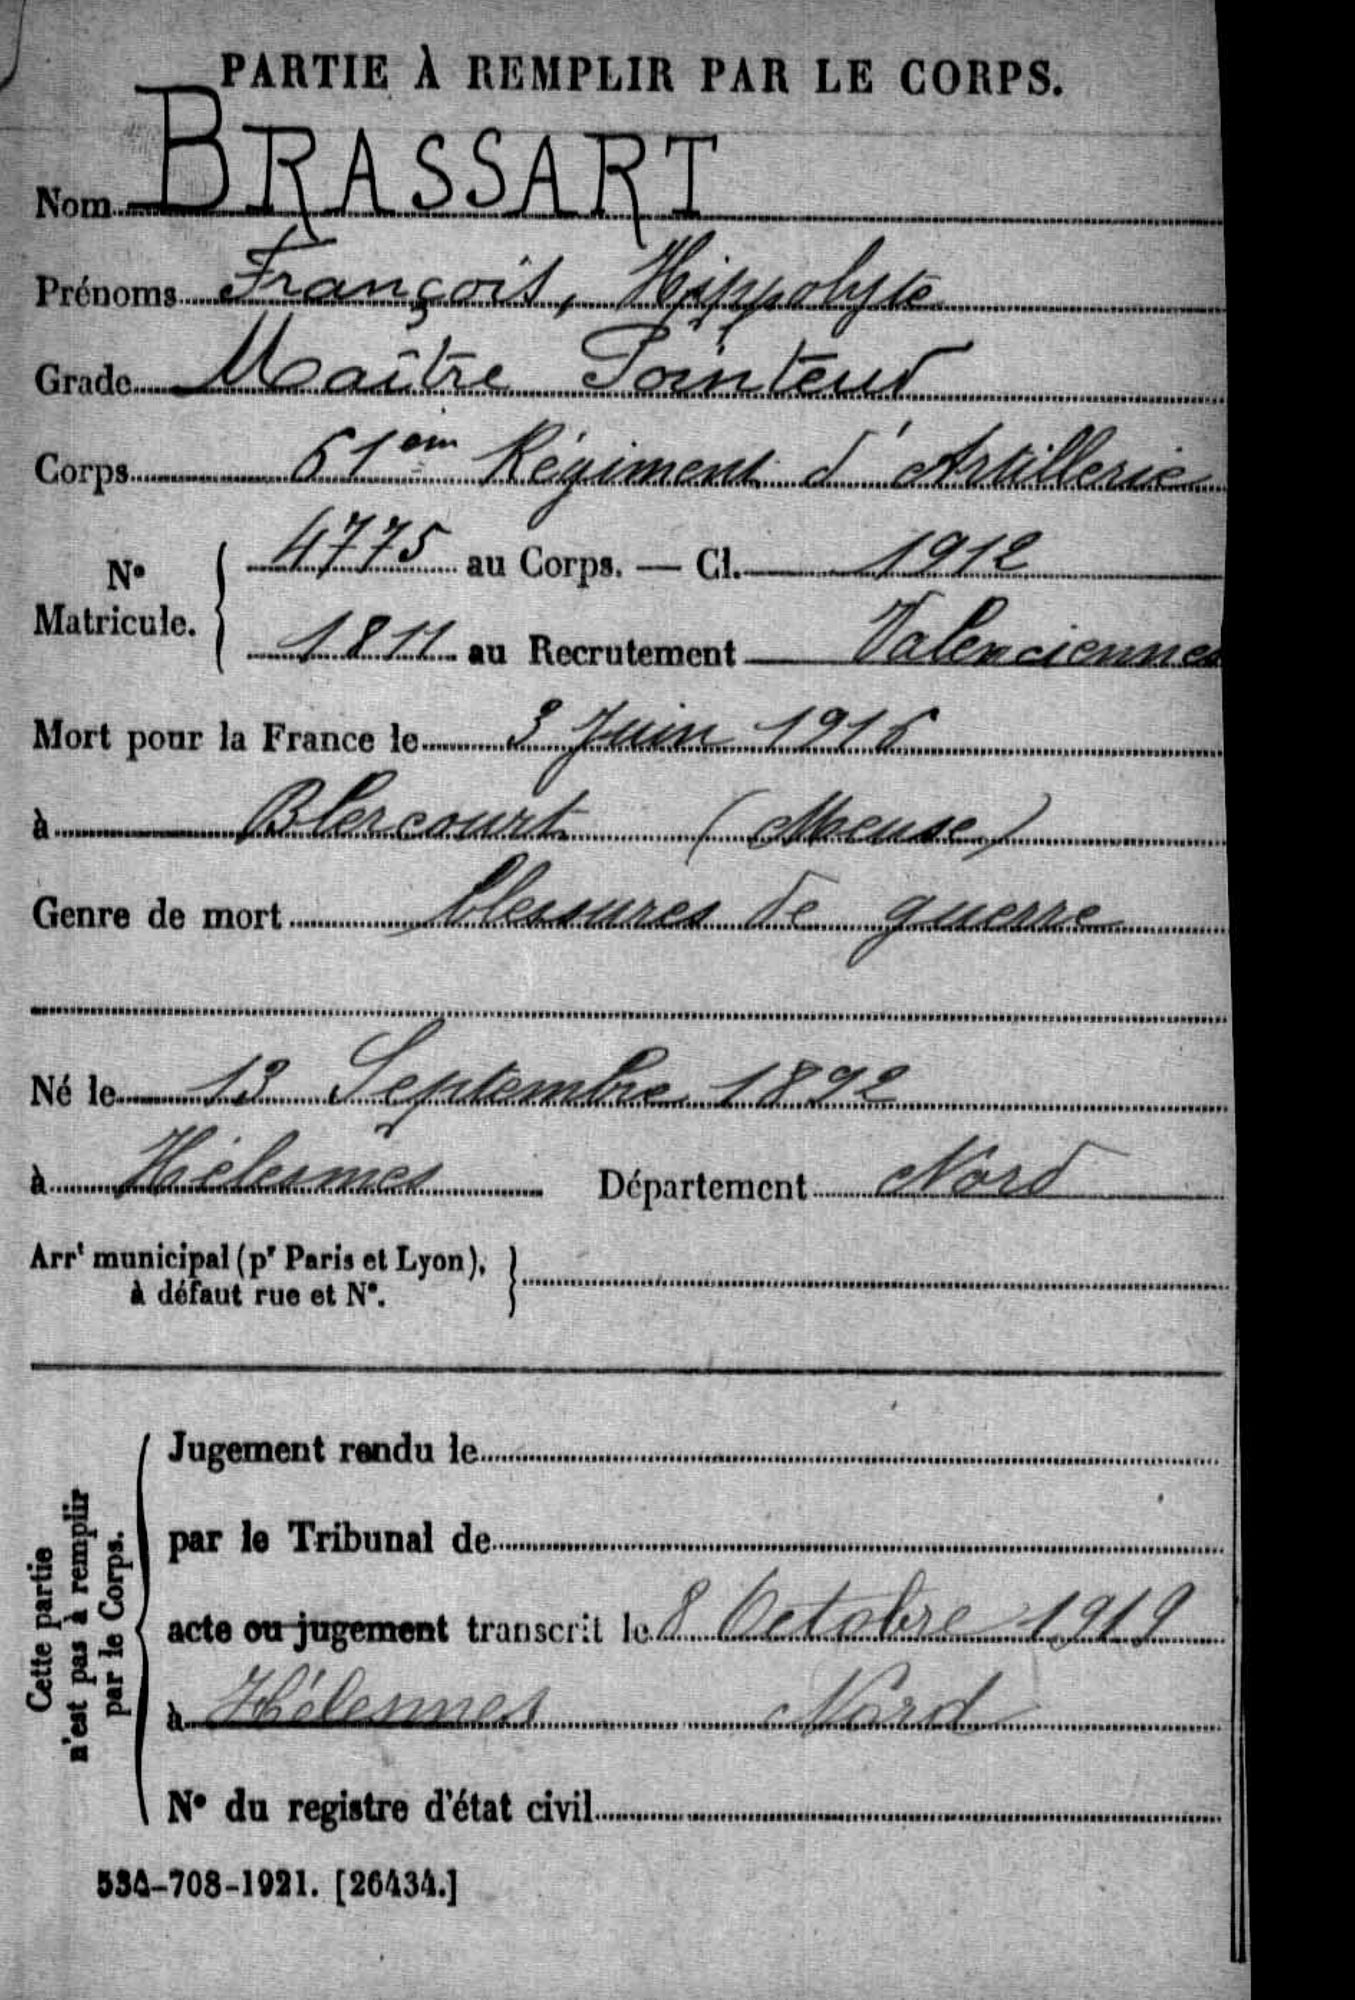 PARTIE À REMPLIR PAR LE CORPS.
Nom BRASSART
Prénoms François, Hippolyte
Grade Maître Pointeur
Corps 61em Régiment d'Artillerie
N° Matricule. 4775 au Corps. — Cl. 1912
1811 au Recrutement Valenciennes
Mort pour la France le 3 Juin 1916
à Blercourt (Meuse)
Genre de mort blessures de guerre
Né le 13 Septembre 1892
à Hélesmes Département Nord
Arrt municipal (pr Paris et Lyon),
à défaut rue et N°.
Cette partie
n'est pas à remplir
par le Corps.
Jugement rendu le
par le Tribunal de
acte ou jugement transcrit le 8 Octobre 1919
à Hélesmes Nord
N° du registre d'état civil
534-708-1921. [26434.]